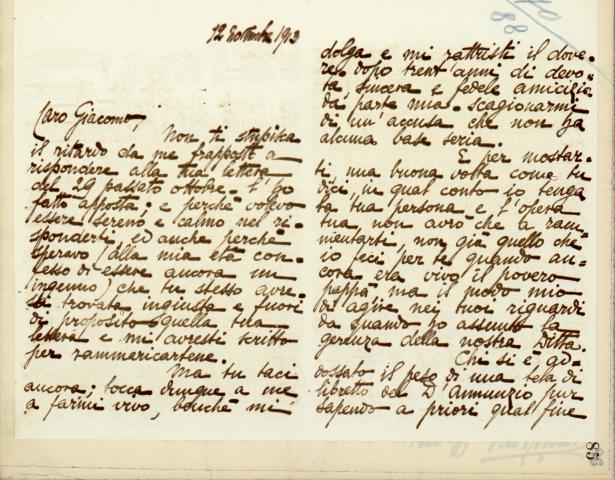 12 Novembre 1913
Caro Giacomo,
Non ti stupisca
il ritardo da me frapposto a
rispondere alla tua lettera
del 29 passato ottobre. L'ho
fatto apposta; e perchè volevo
essere sereno e calmo nel ri-
sponderti, ed anche perchè
speravo (alla mia età con-
fesso di essere ancora un
ingenuo) che tu stesso avre-
sti trovata ingiusta e fuori
di proposito quella tua
lettera e mi avresti scritto
per rammericartene.
Ma tu taci
ancora; tocca dunque a me
a farmi vivo, benchè mi
dolga e mi rattristi il dove-
re, dopo trent'anni di devo-
ta, sincera e fedele amicizia
da parte mia, scagionarmi
di un'accusa che non ha
alcuna base seria.
E per mostrar-
ti, una buona volta come tu
dici, in qual conto io tenga
la tua persona e l'opera
tua, non avrò che a ram-
mentarti, non già quello che
io feci per te quando an-
cora era vivo il povero
pappà ma il modo mio
di agire nei tuoi riguardi
da quando ho assunto la
gerenza della nostra Ditta.
Chi si è ad-
dossato il peso di una tela di
libretto del D'Annunzio pur
sapendo a priori qual fine
88
85